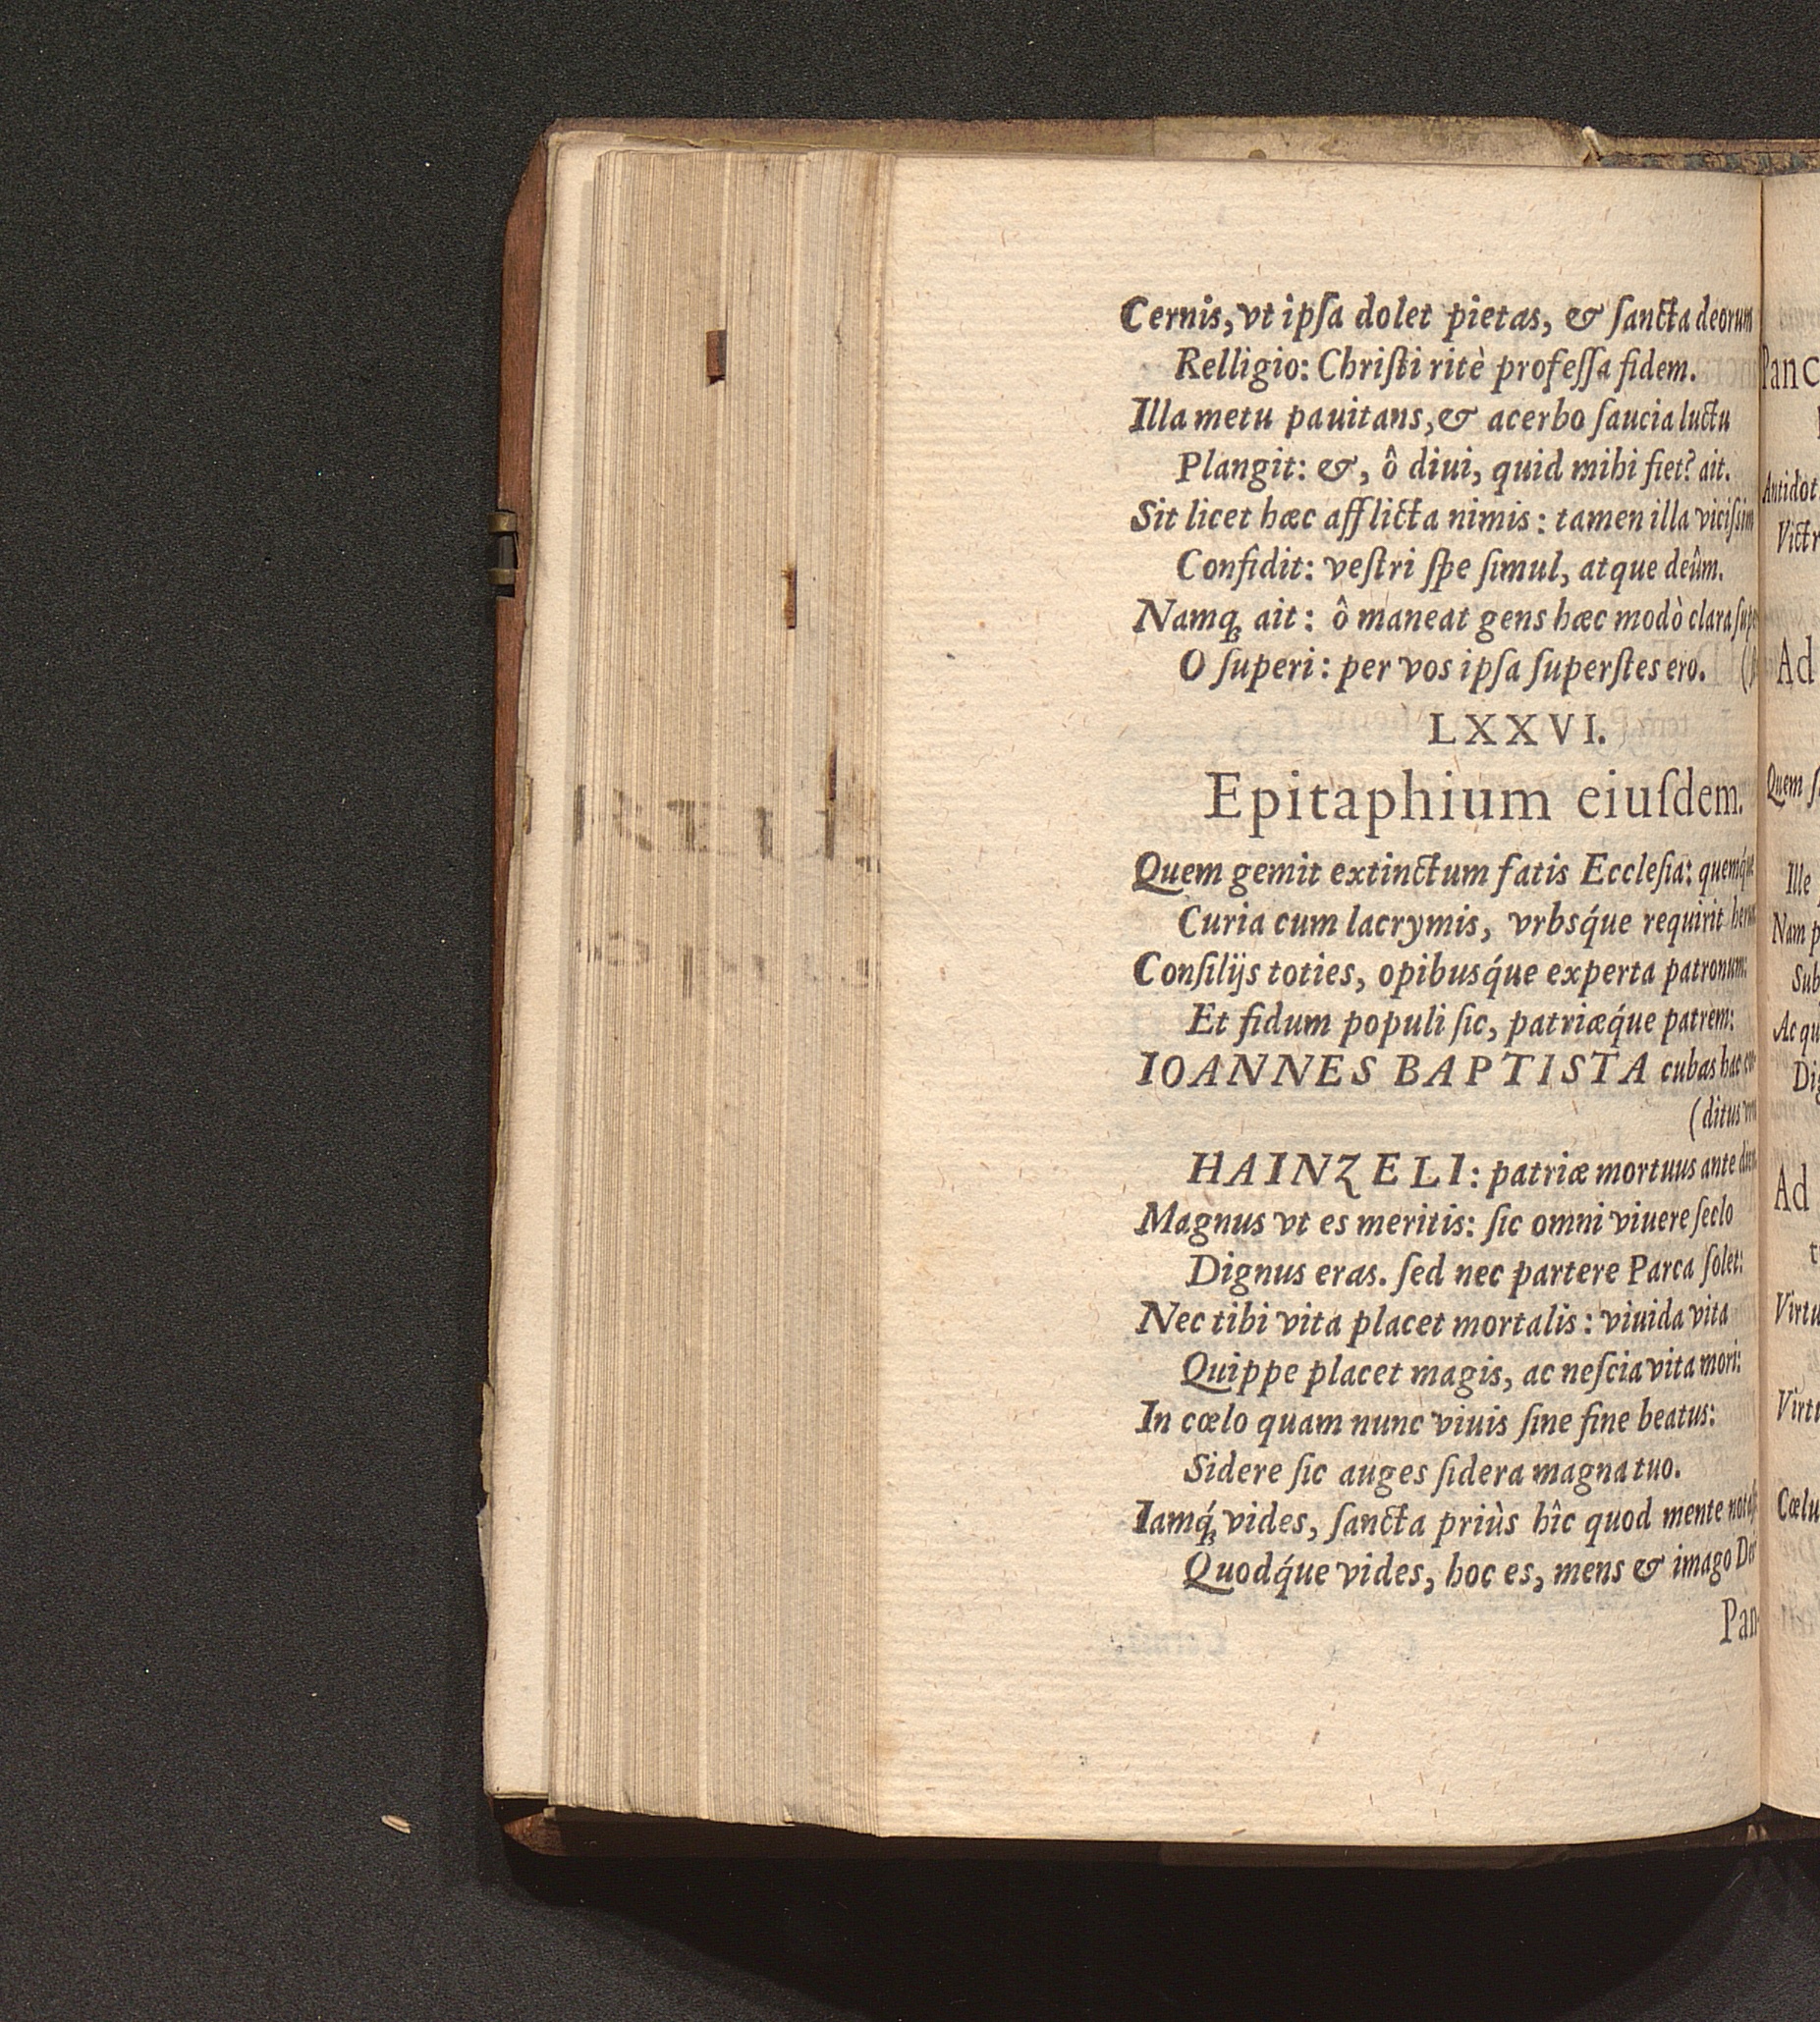 Cernis, vt ipſa dolet pietas, & ſancta deorum
Relligio: Chriſti ritè profeſſa fidem.
Illa metu pauitans, & acerbo ſaucia luctu
Plangit: &, ô diui, quid mihi fiet? ait.
Sit licet hæc afflicta nimis: tamen illa viciſsim
Confidit: veſtri ſpe ſimul, atque deûm.
Namq; ait: ô maneat gens hæc modò clara
O ſuperi: per vos ipſa ſuperſtes ero.
LXXVI.
Epitaphium eiuſdem.
Quem gemit extinctum fatis Eccleſia: quemq́ue
Curia cum lacrymis, vrbsq́ue requirit
Conſilijs toties, opibusq́ue experta patronum:
Et fidum populi ſic, patriæq́ue patrem:
IOANNES BAPTISTA cubas hac
(ditus
HAINZELI: patriæ mortuus ante
Magnus vt es meritis: ſic omni viuere ſeclo
Dignus eras. ſed nec partere Parca ſolet:
Nec tibi vita placet mortalis: viuida vita
Quippe placet magis, ac neſcia vita mori:
In cœlo quam nunc viuis ſine fine beatus:
Sidere ſic auges ſidera magna tuo.
Iamq́; vides, ſancta priùs hîc quod mente
Quodq́ue vides, hoc es, mens & imago
Pan-
Panc
Antidot
Victr
Ad
Quem
Ille
Nam
Sub
Ac qu
Dig
Ad
Virtu
Virtu
Cœlu